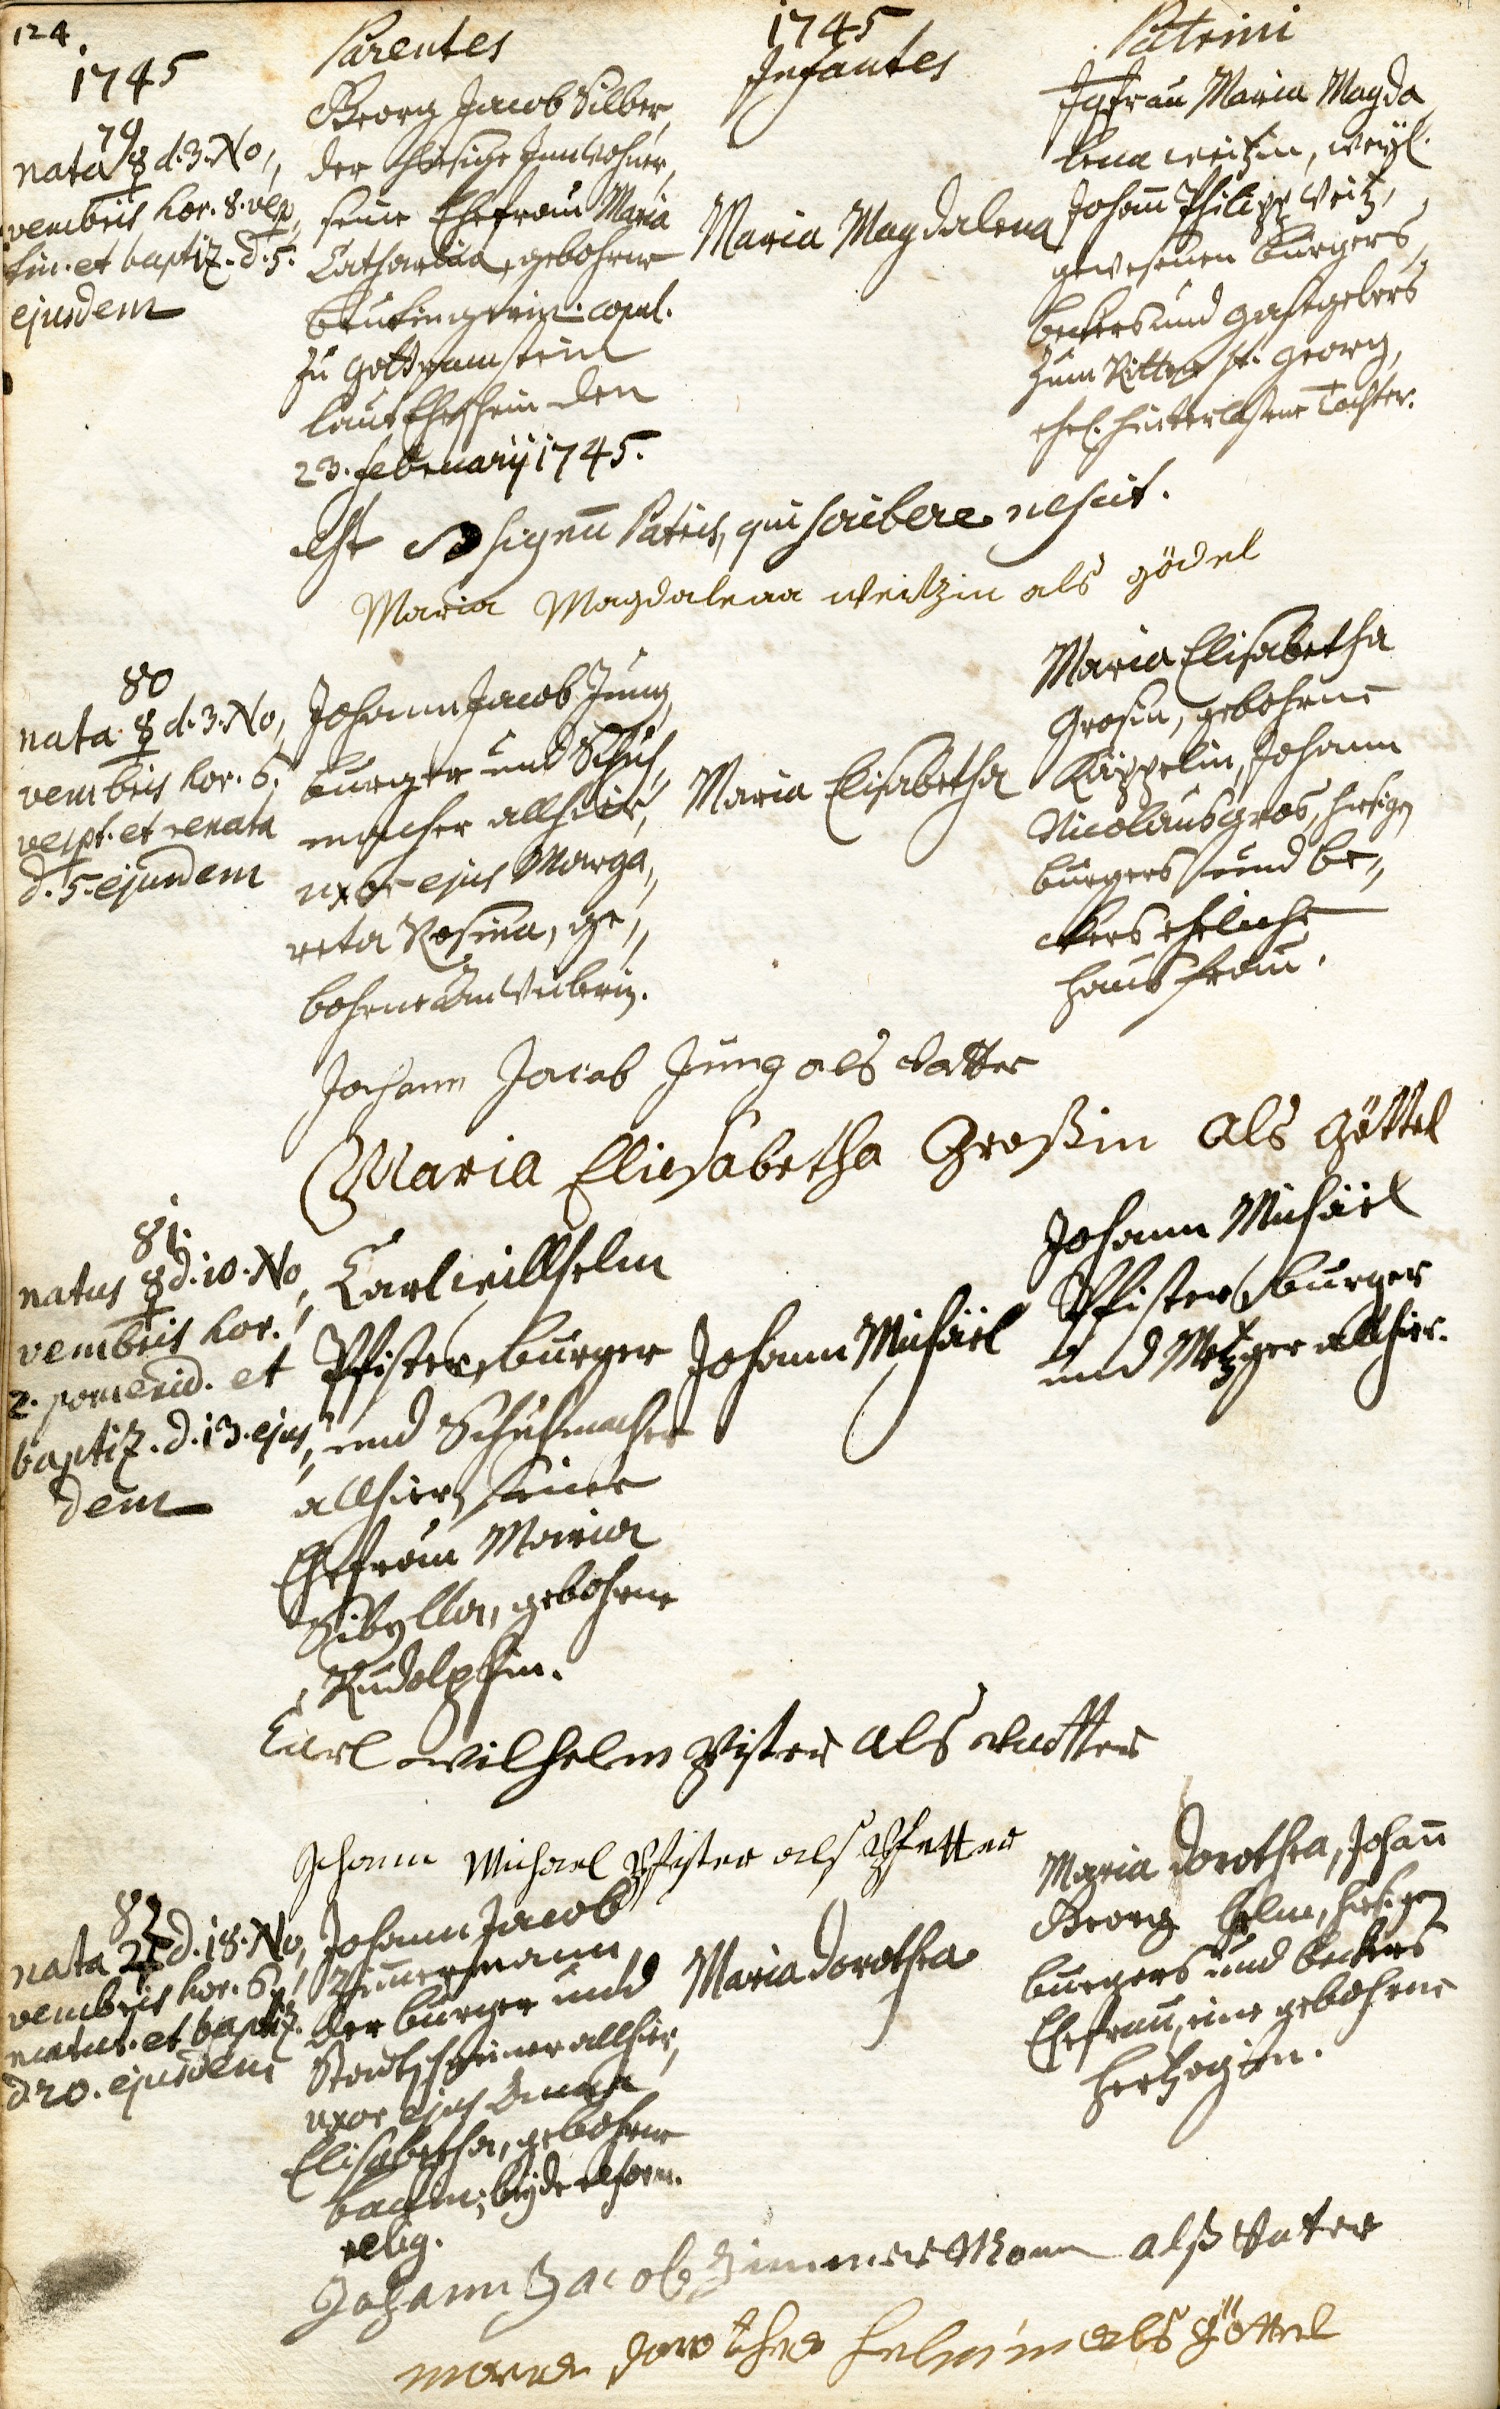 124.
1745
Parentes
1745
Infantes
Patrini
79
nata ☿ d. 3. No,,
vembris hor. 8. vesp,,
tin. et baptiz. d. 5.
ejusdem
Georg Jacob Silber,
der hiesige Innwohner,
seine Ehefrau Maria
Catharina, gebohrne
copul.
zu Gottramstein
laut Ehschein den
23. februarij 1745.
Maria Magdalena
Jgfrau Maria Magda
lena Weitzin, weyl.
Johañ Philipp Veitz,
gewesenen burgers,
beckers und Gastgebers
zum Ritter St. Georg,
ehel. hinterlaßene Tochter.
Est signũ Patris, qui scribere nescit.
Maria Magdalena Weitzin als gödel
80
nata ☿ d. 3. No,,
vembris hor. 6.
vespt. et renata
d. 5. ejusdem
Johann Jacob Jung,
burger und Schuh,,
macher allhier,
uxor ejus Marga,,
reta Rosina, ge,,
bohrne
Maria Elisabetha
Maria Elisabetha
Grosin, gebohrne
Käppelin, Johann
Nicolaus Gros, hiesigen
burgers und be,,
ckers eheliche
hausfrau.
Johann Jacob Jung als vatter
Maria Eliesabetha Großin als göttel
81.
natus ☿ d. 10. No,,
vembris hor.
2. pomerid. et
baptiz. d. 13. ejus,,
dem
Carl Willhelm
Pfister, burger
und Schuhmacher
allhier, seine
Ehefrau Maria
Sibylla, gebohrne
Rudolphin.
Johann Michäel
Johann Michäel
Pfister, burger
und Metzger allhier.
Carl Wilhelm Pfister als vatter
Johann Michael Pfister als Pfetter
82
nata ♃ d. 18. No,,
vembris hor. 6.
matut. et baptiz.
d 20. ejusdem
Johann Jacob
Zim̃ermann,
der burger und
Stadtschreiner allhier,
uxor ejus Anna
Elisabetha, gebohrne
bachin, beyde reform.
relig.
Maria Dorothea
Maria Dorothea, Johañ
Georg Helm, hiesigen
burgers und beckers
Ehefrau, eine gebohrne
Hertzogin.
Johann Jacob Zimmer Mann alß Vater
Maria dorothea helmin als göttel